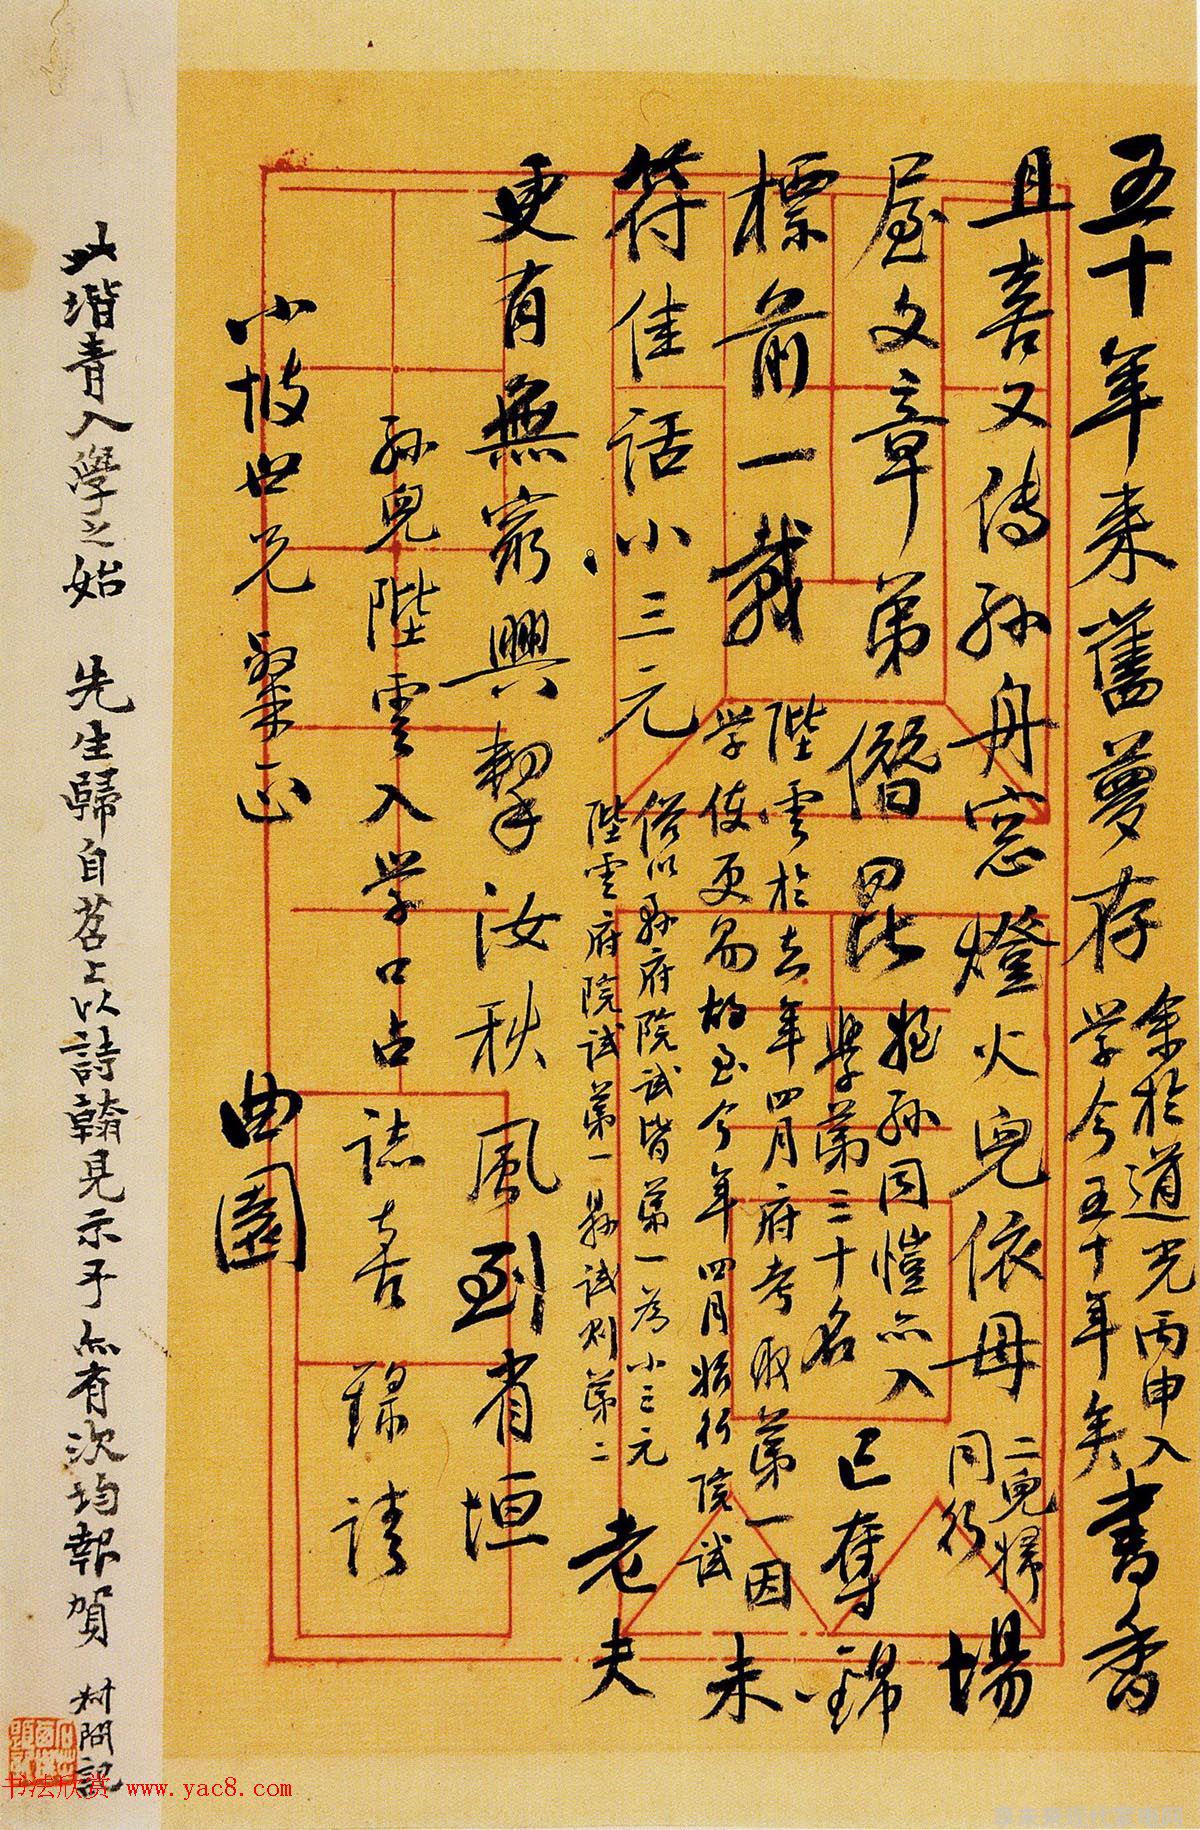 五十年来舊夢存余於道光丙申入学今五十年矣書香
且喜又傳孫舟窓燈火兒依母二兒婦同行場
屋文章弟僭昆姪孫同愷亦入學第三十名已奪錦
標前一載陛雲於去年四月府考取第一因学使更易故至今年四月始行院試未
符佳話小三元俗以縣府院試皆第一為小三元陛雲府院試第一縣試則第二老夫
更有無窮興挈汝秋風到省垣
孫兒陛雲入学口占誌喜録請
小坡世兄粲正
曲園
此階青入學之始 先生歸自苕上以詩翰見示予亦有次均報賀 尗問記
书法欣赏 www.yac8.com